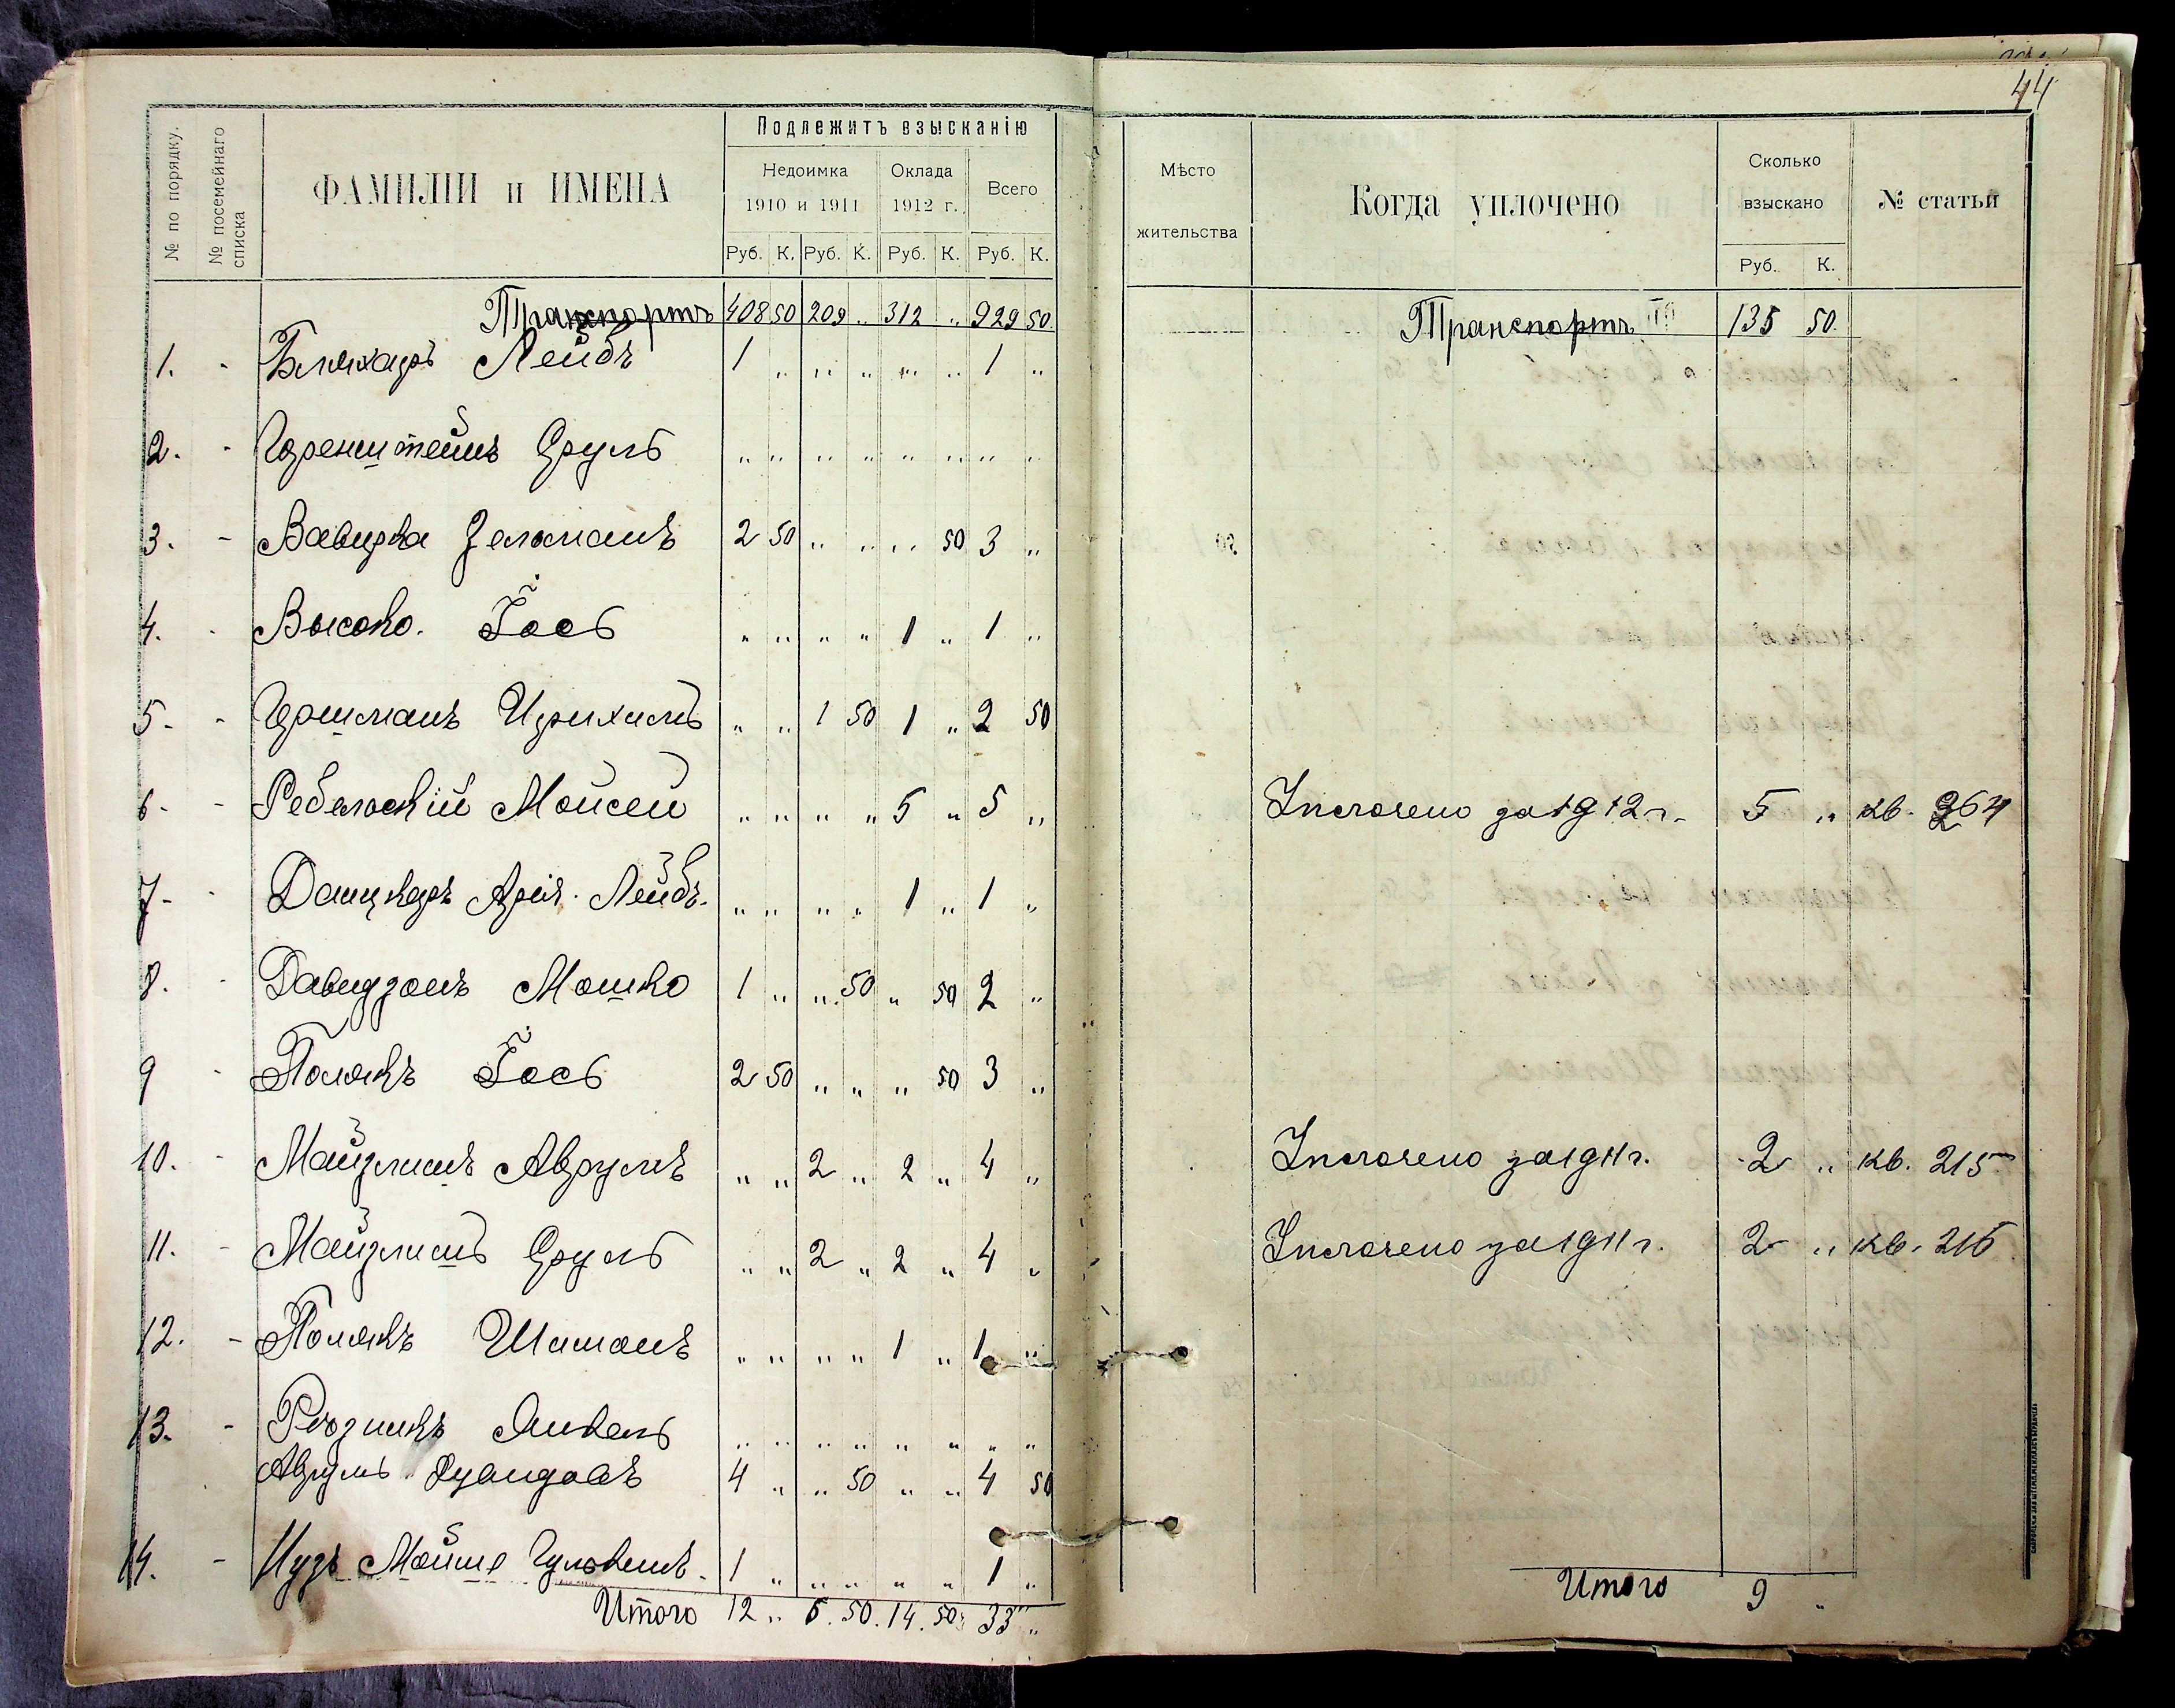 44
№ по порядку.
№ посемейнаго списка
ФАМИЛІИ и ИМЕНА
Подлежитъ взысканію
Недоимка 1910 и 1911
Оклада 1912 г.
Всего
Руб. К. Руб. К. Руб. К. Руб. К.
Мѣсто жительства
Когда уплочено
Сколько взыскано
Руб. К.
№ статьи
Транспортъ 408 50 209 „ 312 „ 929 50
Транспортъ 135 50
1. - Лейбъ 1 „ „ „ „ „ 1 „
2. - Геренштейнъ Сруль „ „ „ „ „ „ „ „
3. - Зельманъ 2 50 „ „ „ 50 3 „
4. - Высоко. Іось „ „ „ „ 1 „ 1 „
5. - Гершманъ „ „ 1 50 1 „ 2 50
6. - Мойсей „ „ „ „ 5 „ 5 „
Уплочено за 1912 г. 5 „ кв. 264
7. - Данцкеръ Арія-Лейбъ. „ „ „ „ 1 „ 1 „
8. - Давидзонъ Мошко 1 „ „ 50 „ 50 2 „
9 - Полякъ Іось 2 50 „ „ „ 50 3 „
10. - Майзлишъ Аврумъ „ „ 2 „ 2 „ 4 „
Уплочено за 1911 г. 2 „ кв. 215
11. - Майзлишъ Сруль „ „ 2 „ 2 „ 4 „
Уплочено за 1911 г. 2 „ кв. 216
12. - Полякъ Шимонъ „ „ „ „ 1 „ 1 „
13. - Рѣзникъ Янкель „ „ „ „ „ „ „ „
Аврумъ 4 „ „ 50 „ „ 4 50
14. - Мойше 1 „ „ „ „ „ 1 „
Итого 12 „ 6. 50. 14. 50 33 „
Итого 9 „